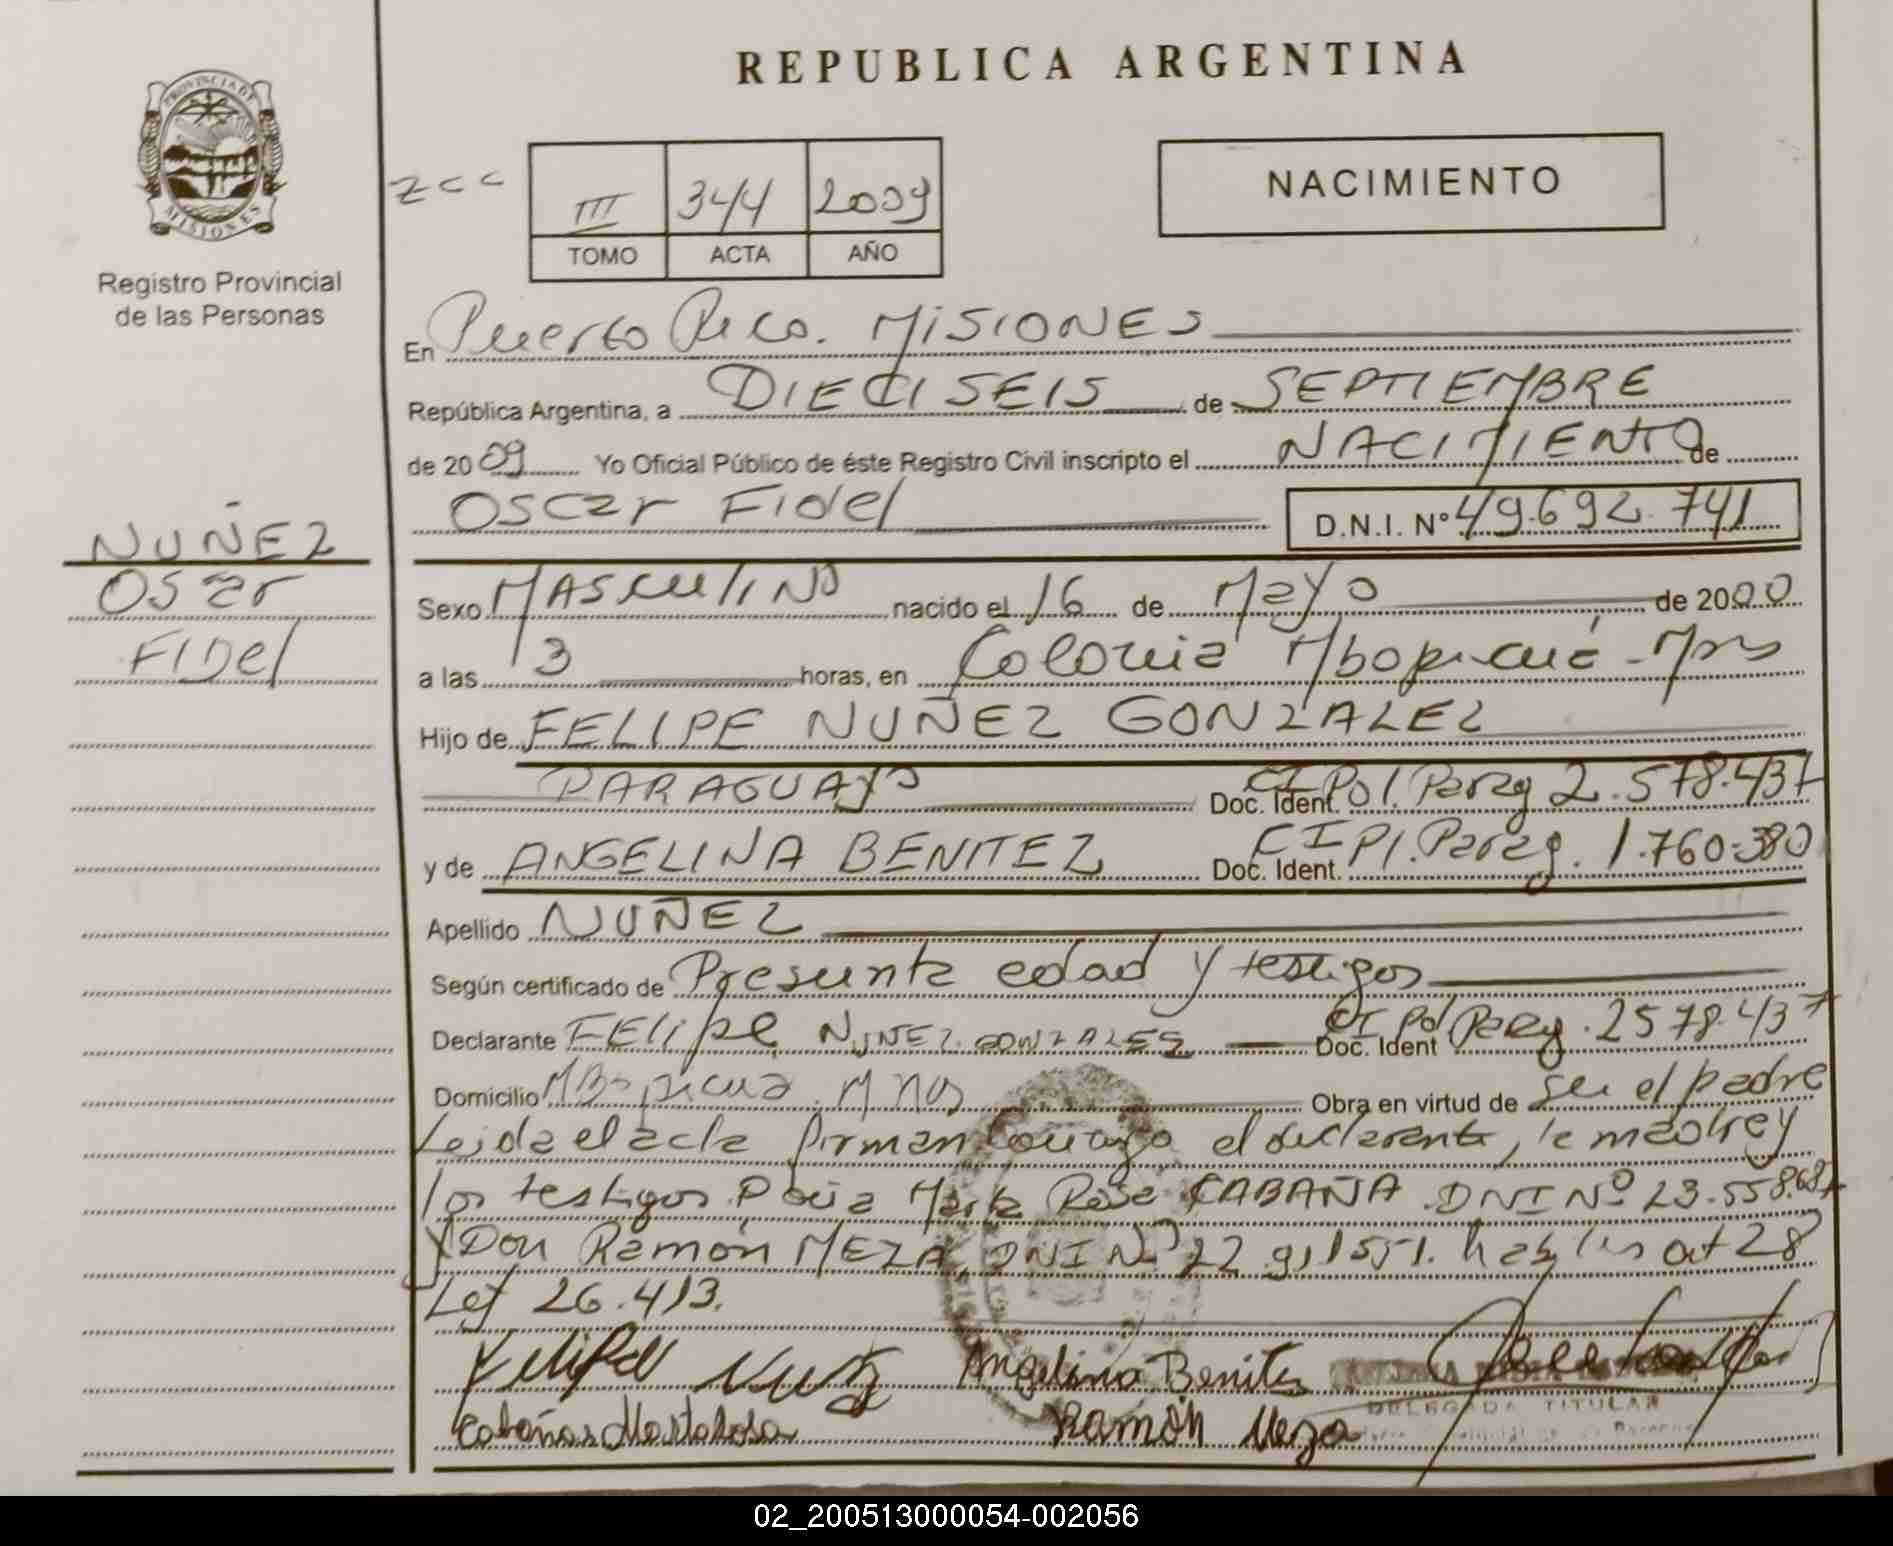 REPUBLICA ARGENTINA
PROVINCIA DE MISIONES
Registro Provincial
de las Personas
zcc
III 344 2009
TOMO ACTA AÑO
NACIMIENTO
En Puerto Rico. MISIONES
República Argentina, a DIECISEIS de SEPTIEMBRE
de 2009 Yo Oficial Público de éste Registro Civil inscripto el NACIMIENTO de
Oscar Fidel D.N.I. Nº 49.692.741
NUÑEZ
Oscar
FIDel
Sexo MASCULINO nacido el 16 de Mayo de 2000
a las 3 horas, en Colonia Mbopicuá - Mns
Hijo de FELIPE NUÑEZ GONZALEZ
PARAGUAYO Doc. Ident. CI Pol. Parag 2.578.437
y de ANGELINA BENITEZ Doc. Ident. CI Pl. Parag. 1.760.380
Apellido NUÑEZ
Según certificado de Presunta edad y testigos
Declarante FELIPE NUNEZ GONZALES Doc. Ident CI Pol Parag. 2578.437
Domicilio Mbopicua. Mnes Obra en virtud de ser el padre
Leida el acta firman conmigo el declarante, la madre y
los testigos Doña Marta Rosa CABAÑA DNI Nº 23.558.687
y Don Ramón MEZA, DNI Nº 22.911551. art 28
Ley 26.413.
Felipe Nuñez Angelina Benites
DELEGADA TITULAR
Cabañas Marta Rosa Ramón Meza
02_200513000054-002056